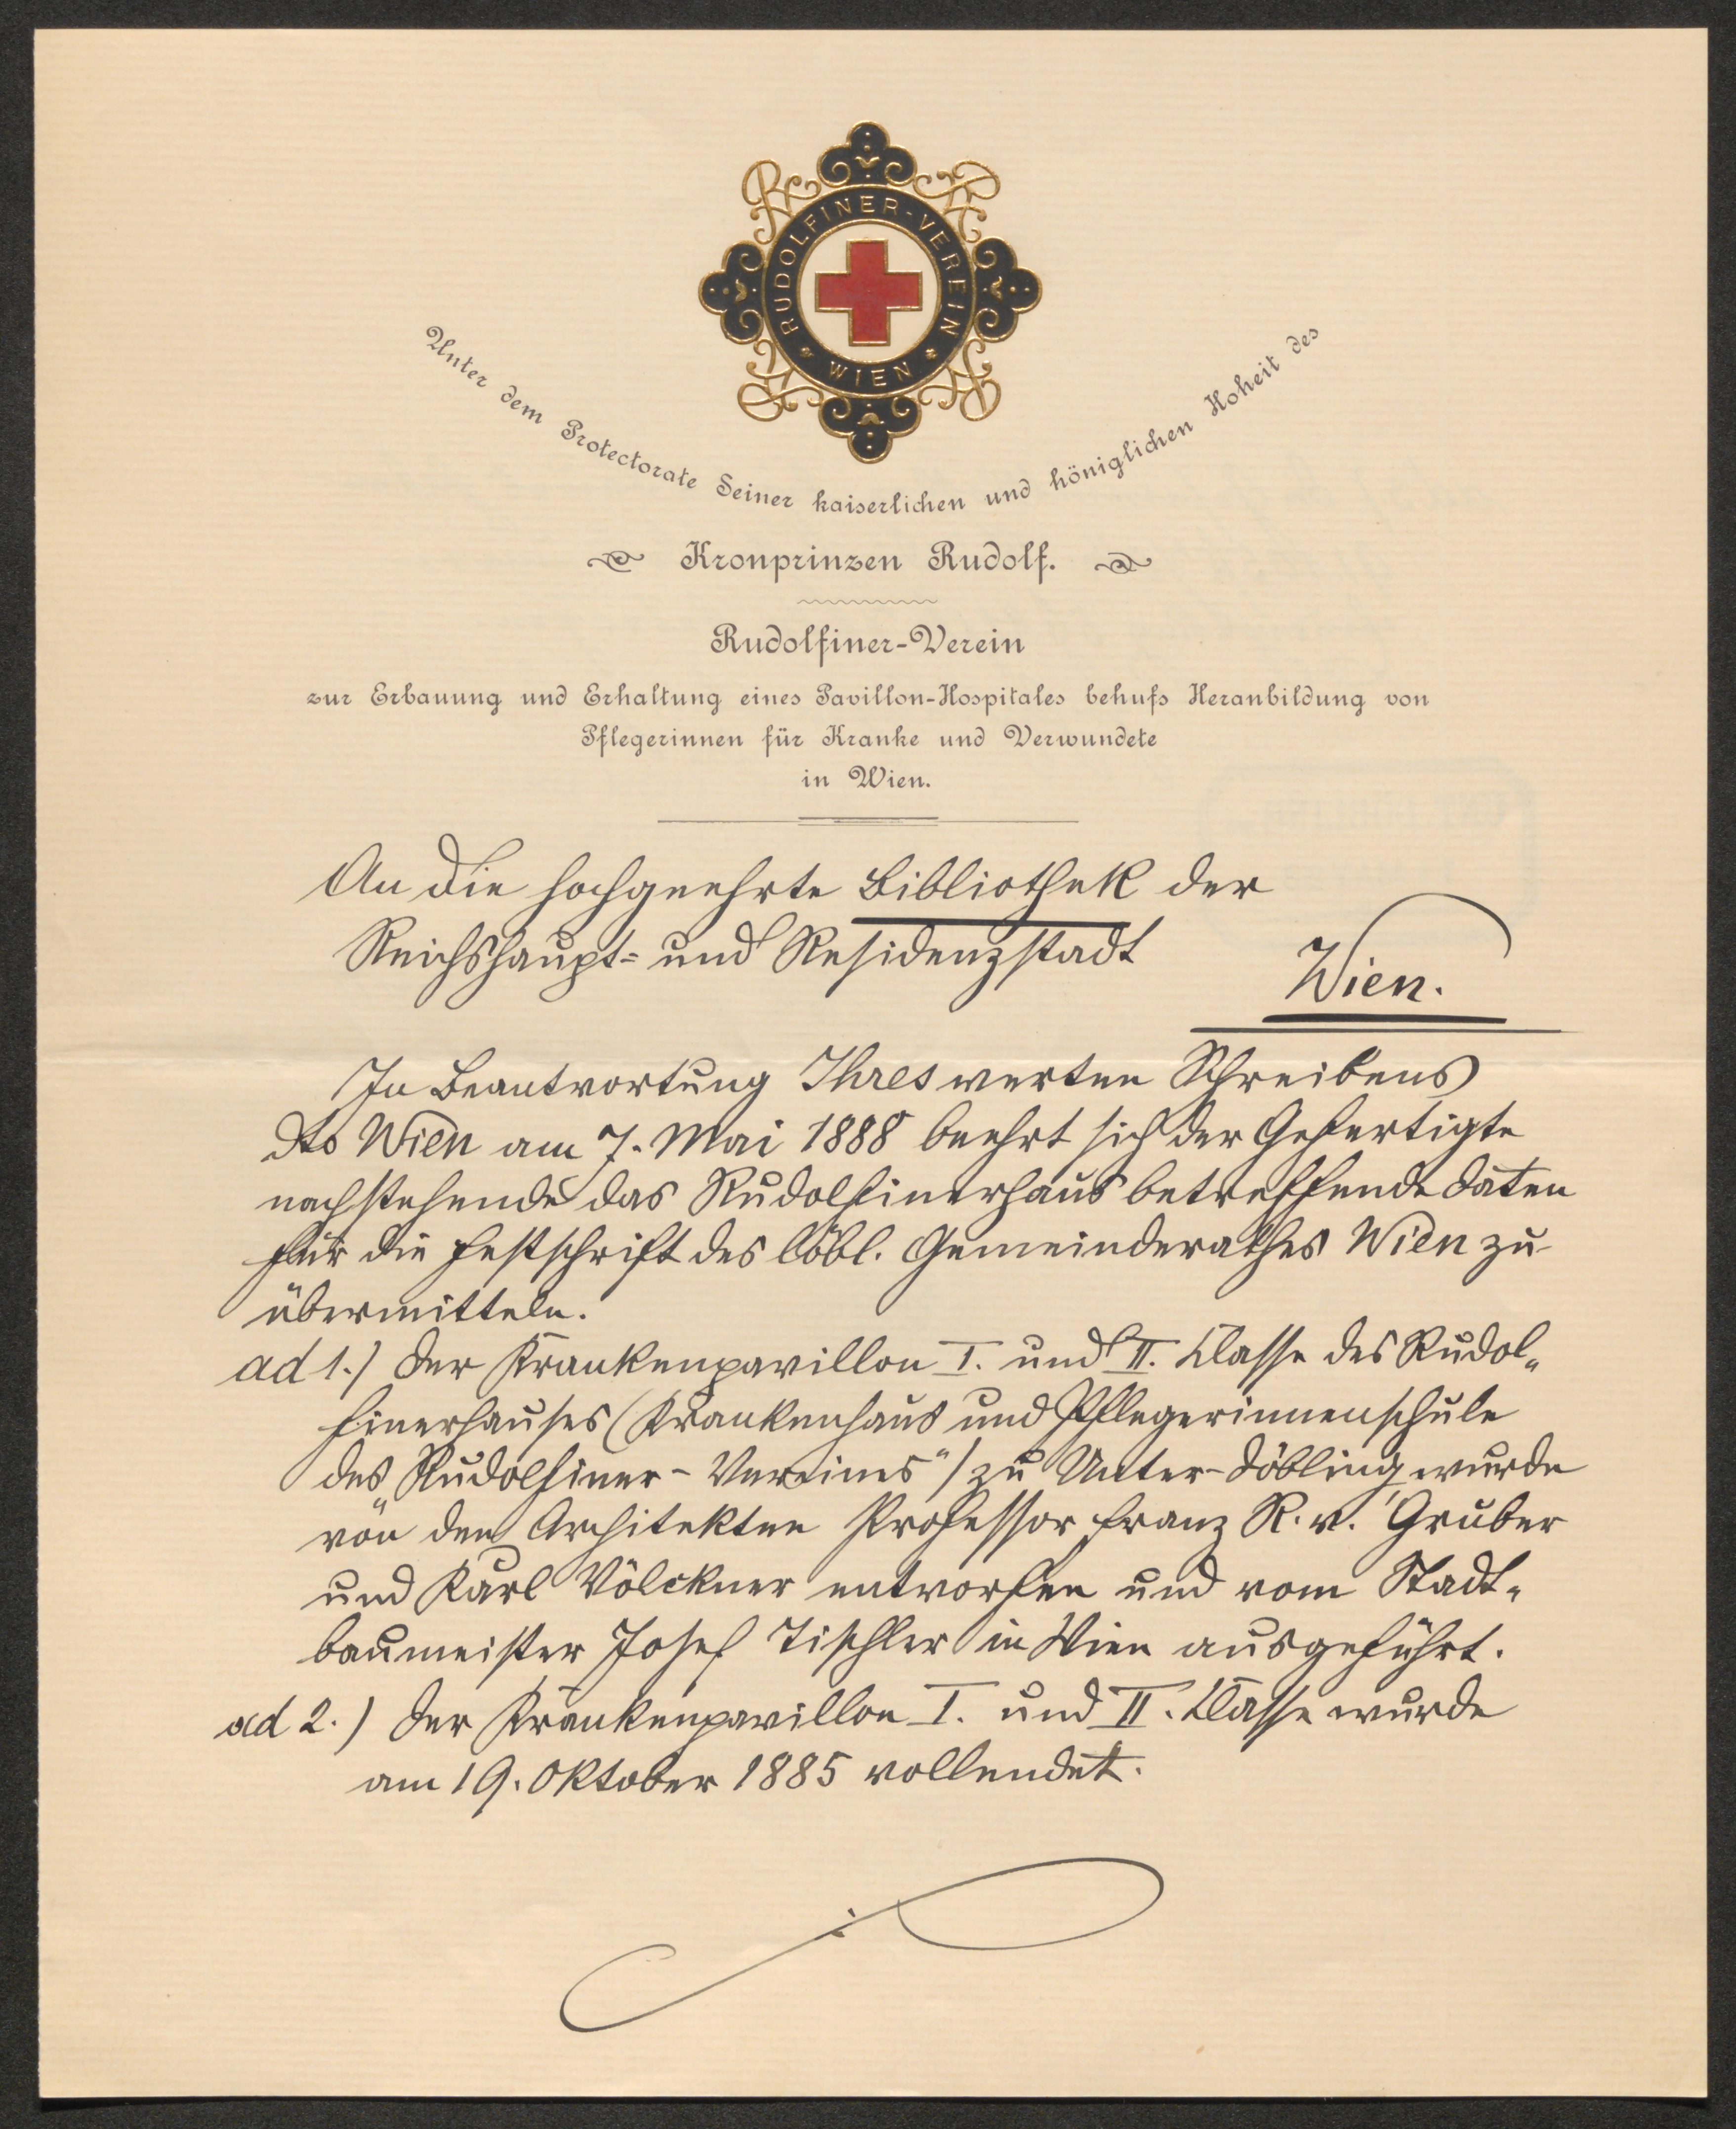 RUDOLFINER-VEREIN
WIEN
Unter dem Protectorate Seiner kaiserlichen und königlichen Hoheit des
Kronprinzen Rudolf.
Rudolfiner-Verein
zur Erbauung und Erhaltung eines Pavillon-Hospitales behufs Heranbildung von
Pflegerinnen für Kranke und Verwundete
in Wien.
An die hochgeehrte Bibliothek der
Reichshaupt= und Residenzstadt
Wien.
In Beantwortung Ihres werten Schreibens
dto Wien am 7. Mai 1888 beehrt sich der Gefertigte
nachstehende das Rudolfinerhaus betreffende Daten
für die Festschrift des löbl. Gemeinderathes Wien zu
übermitteln.
ad 1.) Der Krankenpavillon I. und II. Classe des Rudol„
finerhauses (Krankenhaus und Pflegerinnenschule
des „Rudolfiner-Vereines") zu Unter-Döbling, wurde
von den Architekten Professor Franz R. v. Gruber
und Karl Völckner entworfen und vom Stadt„
baumeister Josef Tischler in Wien ausgeführt.
ad 2.) Der Krankenpavillon I. und II. Classe wurde
am 19. Oktober 1885 vollendet.